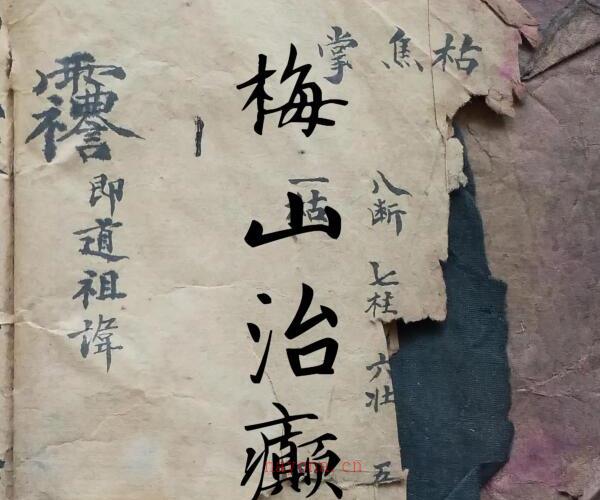 枯焦掌
八断 七柱 六壮 五
一枯
梅山治癲
即道祖諱